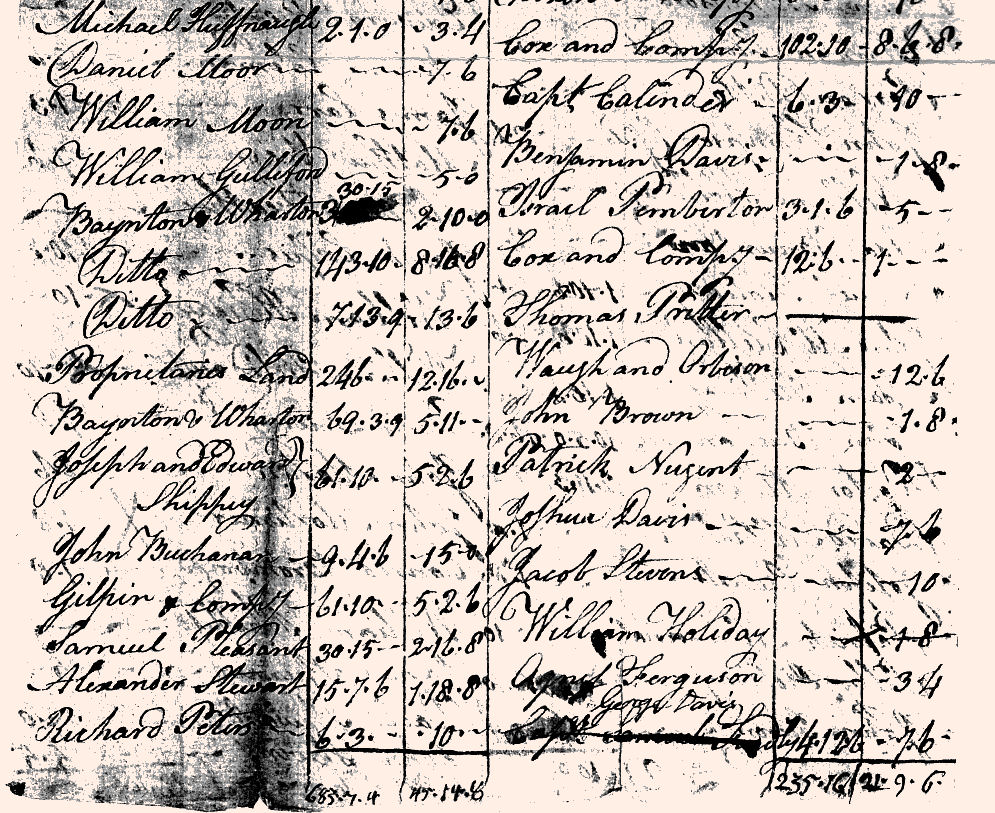 Michael Huffnaugle 2.1.0 - 3.4
Daniel Moor - 7.6
William Moon 7.6
William Gulliford 5.0
30.15
Baynton & Wharton 2.10.0
Ditto 143.10 8.16.8
Ditto 7.13.9 - 13.6
Proprietaries Land 246 - - 12.16. -
Baynton & Wharton 69.3.9 5.11. -
Joseph and Edward
Shippey 61.10 - 5.2.6
John Buchanan 9.4.6 - 15.0
Gilpin & Compy 61.10 - 5.2.6
Samuel Pleasant 30.15 - 2.16.8
Alexander Stewart 15.7.6 1.18.8
Richard Peters 6.3. - - 10. -
683.7.4 45.14.8
Cox and Compy. 102.10 - 8.6.8.
Capt Calinder 6.3 - - 10 -
Benjamin Davis - 1.8.
Israil Pemberton 3.1.6 - 5 - -
Cox and Compy 12.6 - 1. - -
Thomas Pritter
Waugh and Orbison - 12.6
John Brown - 1.8.
Patrick Nugent - 2 -
Joshua Davis - 7.6
Jacob Stevens - 10.
William Holiday 1.8
Agnes Ferguson - 3.4
George Davis
4.12.6 - 7.6
235.16 21.9.6.